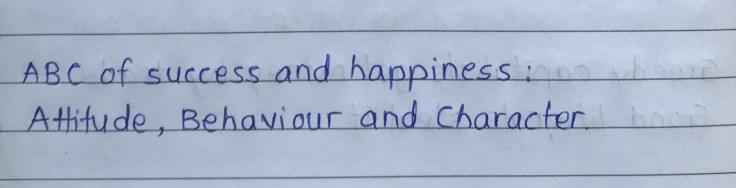 ABC of success and happiness:
Attitude, Behaviour and Character.